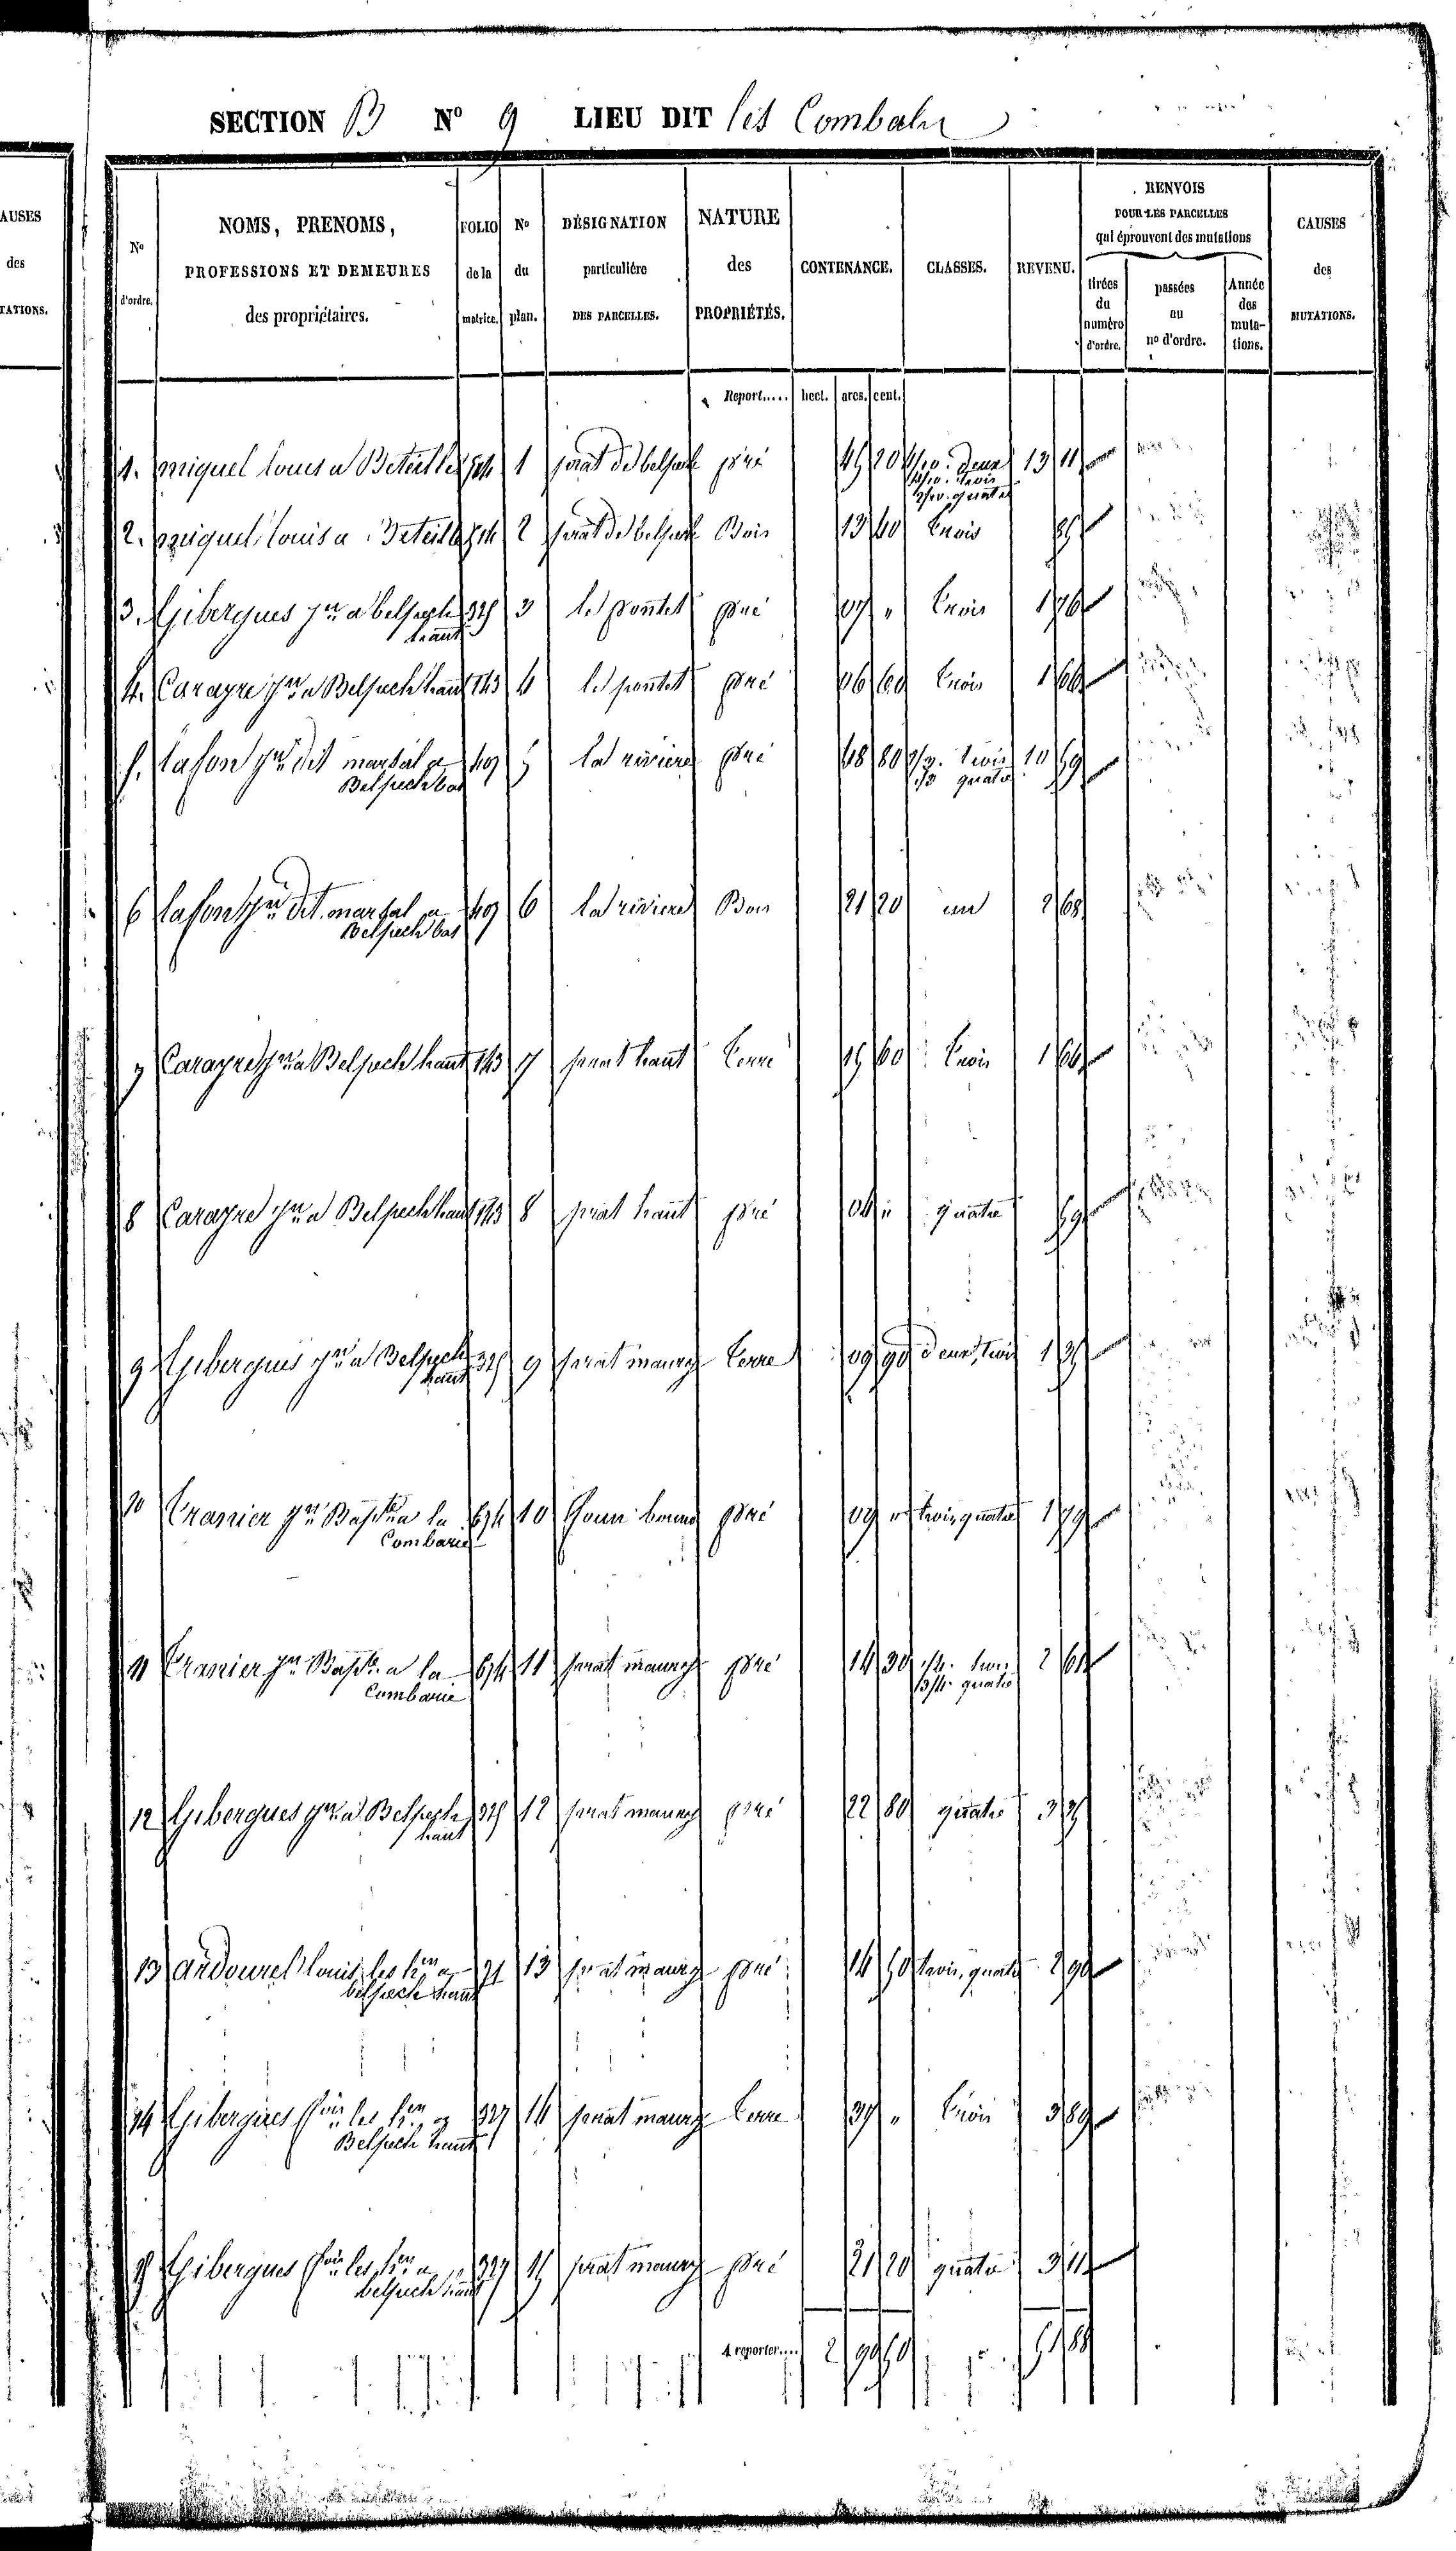 SECTION B N° 9 LIEU DIT les Combals
AUSES
des
TATIONS.
N°
d'ordre.
NOMS, PRENOMS,
PROFESSIONS ET DEMEURES
des propriétaires.
FOLIO
de la
matrice.
N°
du
plan.
DÉSIGNATION
particulière
DES PARCELLES.
NATURE
des
PROPRIÉTÉS.
CONTENANCE.
CLASSES.
REVENU.
RENVOIS
POUR LES PARCELLES
qui éprouvent des mutations
tirées
du
numéro
d'ordre.
passées
au
no d'ordre.
Année
des
muta-
tions.
CAUSES
des
MUTATIONS.
Report..... hect. ares. cent.
1. miquel Louis a Beteille 514 1 prat de belpech pré 45 20 deux 13 11
trois
quatre
2. miquel Louis a Beteille 514 2 prat de belpech Bois 13 40 trois
3. Gibergues jn a belpech 325 3 le pontet pré 07 " trois 1 76
haut
4. Carayre jn a Belpech haut 143 4 le pontet pré 06 60 trois 1 66
5. Lafon jn dit martial a 409 5 la riviere pré 48 80 2/3 trois 10 59
Belpech bas 1/3 quatre
6 Lafon jn dit martial a 409 6 la riviere Bois 21 20 un 2 68
Belpech bas
7 Carayre jn a Belpech haut 143 7 prat haut terre 15 60 trois 1 64
8 Carayre jn a Belpech haut 143 8 prat haut pré 04 " quatre 59
9 Gibergues jn a Belpech 325 9 prat maury terre 09 90 deux, trois 1 35
haut
10 Cranier jn Bapte a la 674 10 pré 09 " trois, quatre 1 79
Combarie
11 Cranier jn Bapte a la 674 11 prat maury pré 14 30 1/4 trois 2 61
Combarie 3/4 quatre
12 Gibergues jn a Belpech 325 12 prat maury pré 22 80 quatre 3 35
haut
13 andourel Louis les hers a 21 13 prat maury pré 14 50 trois, quatre 2 90
belpech haut
14 Gibergues les hers a 327 14 prat maury terre 37 " trois 3 89
Belpech haut
15 Gibergues les hers a 327 15 prat maury pré 21 20 quatre 3 11
belpech haut
A reporter.... 2 99 50 51 88